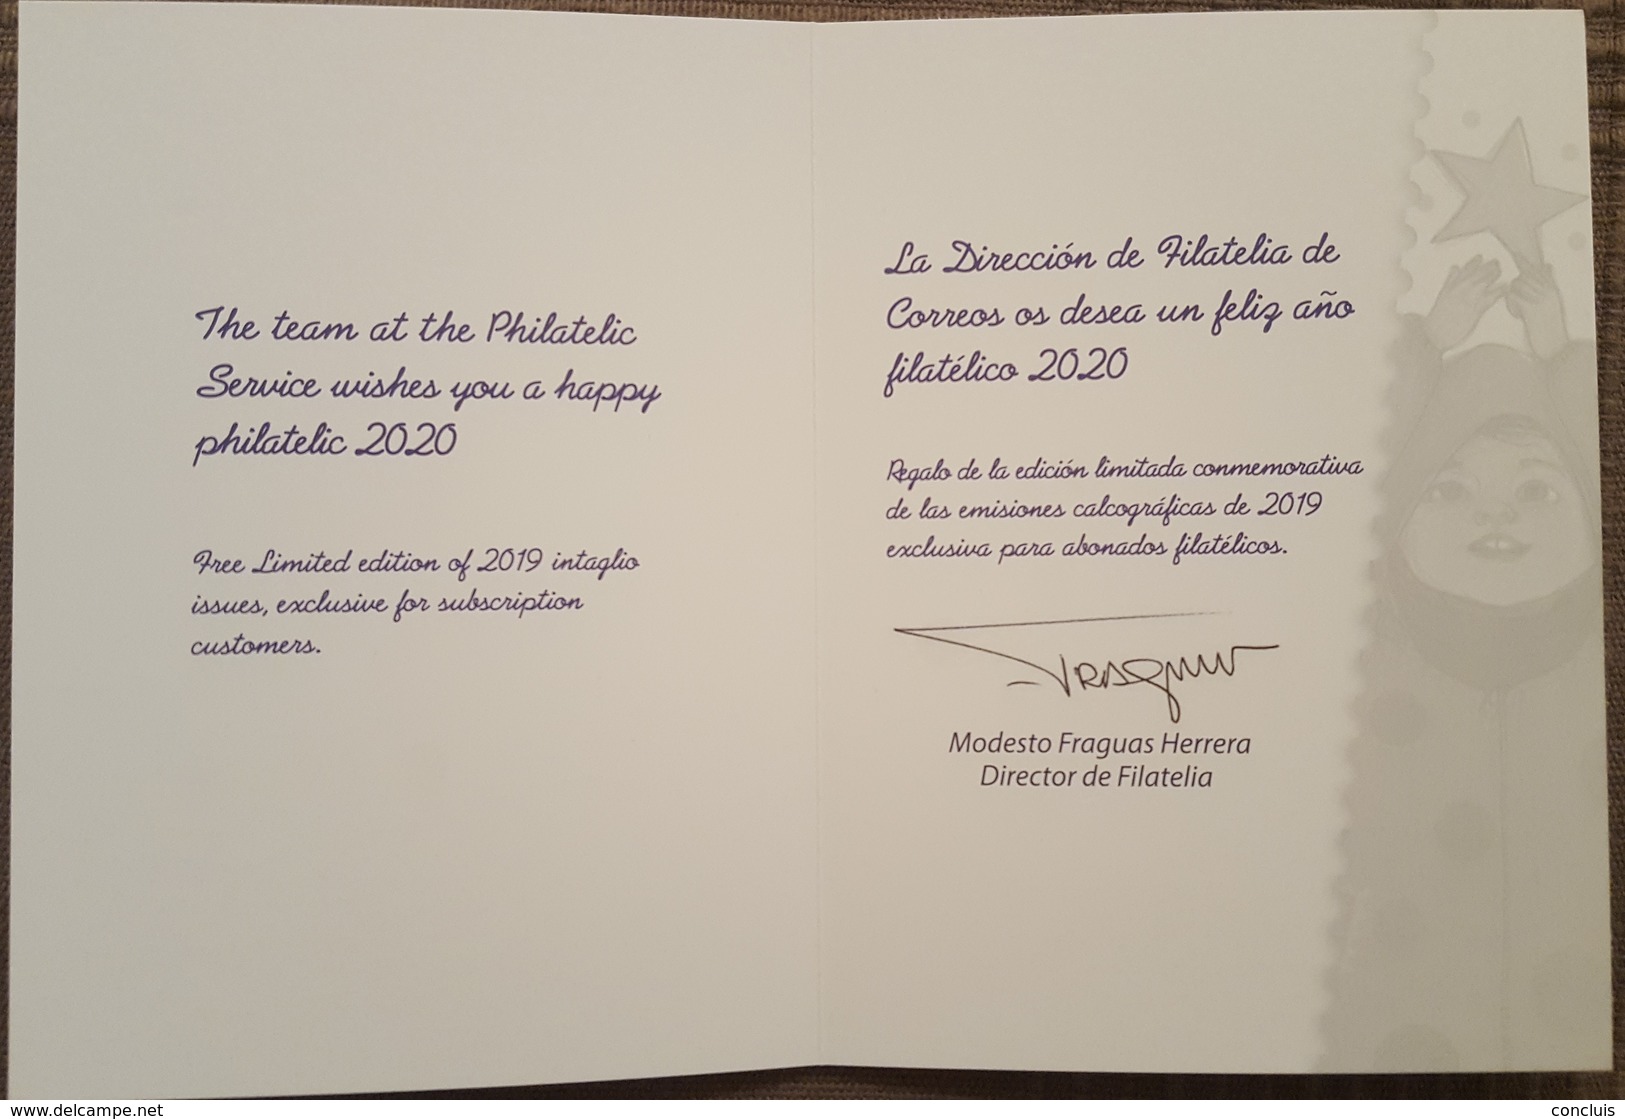 The team at the Philatelic
Service wishes you a happy
philatelic 2020
Free Limited edition of 2019 intaglio
issues, exclusive for subscription
customers.
La Dirección de Filatelia de
Correos os desea un feliz año
filatélico 2020
Regalo de la edición limitada conmemorativa
de las emisiones calcográficas de 2019
exclusiva para abonados filatélicos.
Fraguas
Modesto Fraguas Herrera
Director de Filatelia
www.delcampe.net
concluis